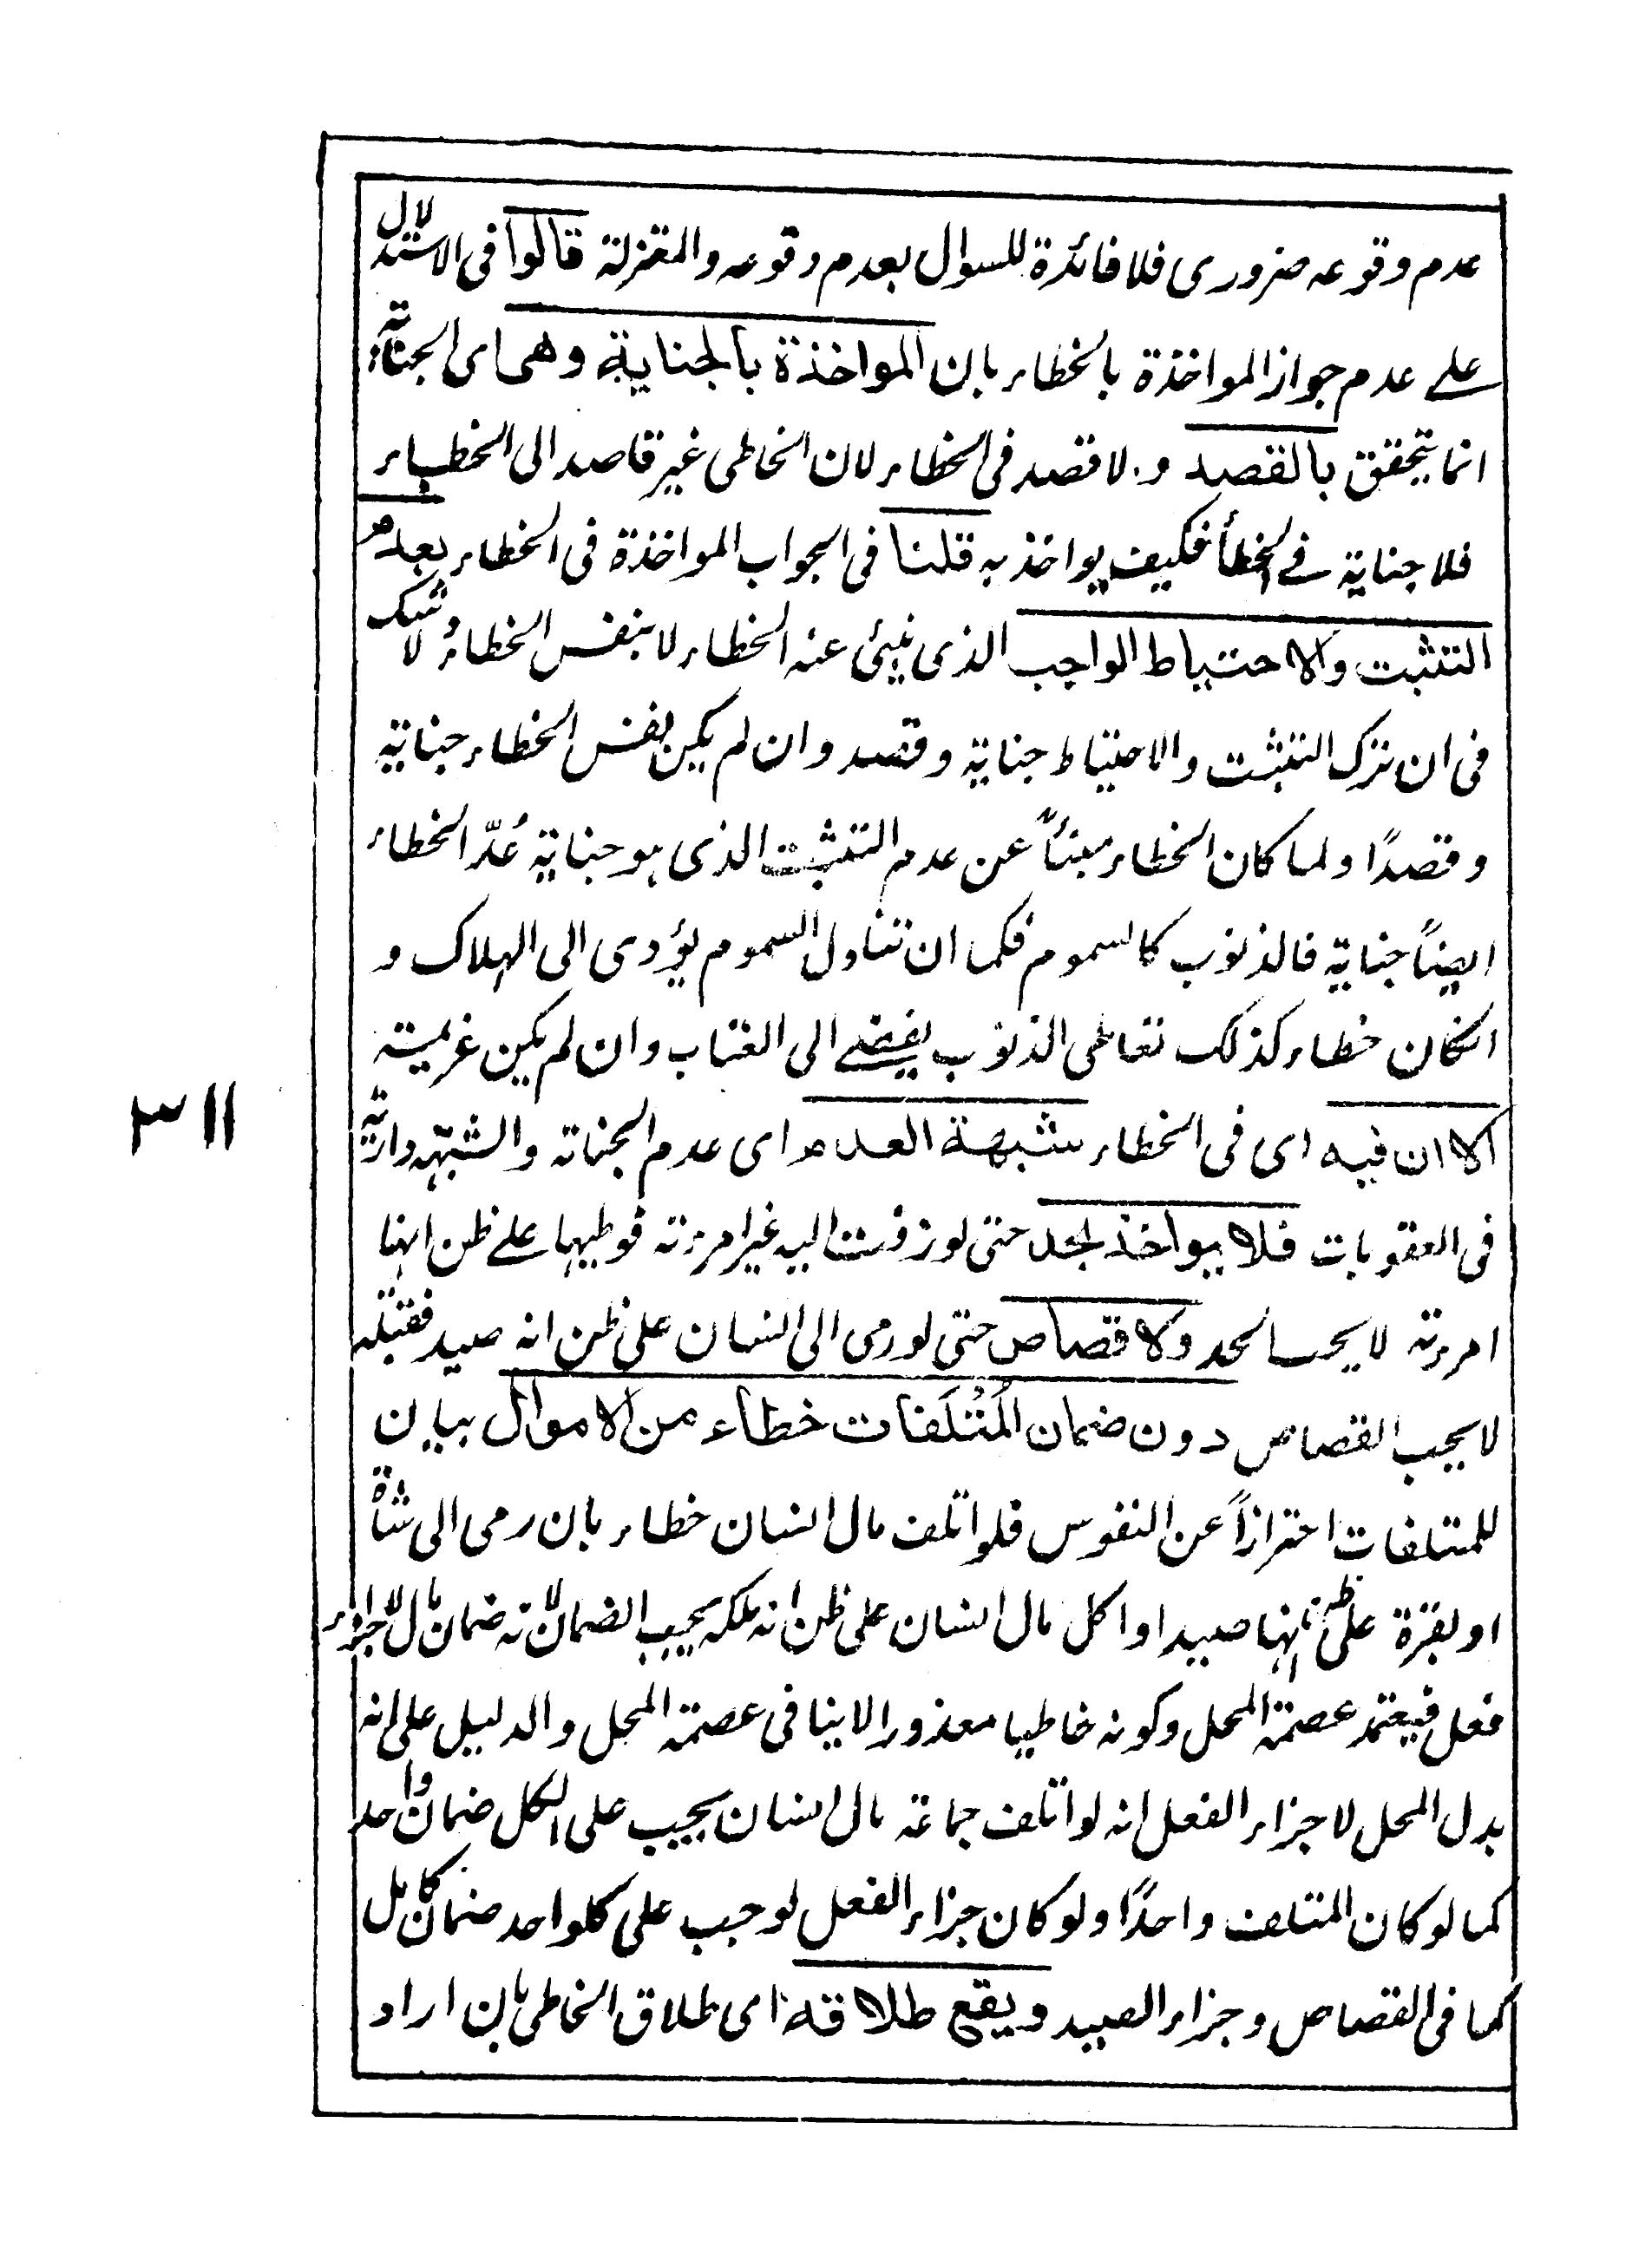 عدم وقوعه ضروری فلا فائدة للسوال بعدم وقوعه والمعتزلة قالوا فی الاستدلال
علے عدم جواز المواخذة بالخطاء بان المواخذة بالجناية وهی ای الجناية
انما يتحقق بالقصد ولا قصد فی الخطاء لان الخاطی غير قاصد الی الخطاء
فلا جناية فے الخطأ فكيف يواخذ به قلنا فی الجواب المواخذة فی الخطاء بعدم
التثبت والاحتياط الواجب الذی ينبئ عنه الخطاء لا بنفس الخطاء ولا شك
فی ان ترك التثبت والاحتياط جناية وقصد وان لم يكن نفس الخطاء جناية
وقصدًا ولما كان الخطاء مبنئاً عن عدم التثبت الذی هو جناية عُدّ الخطاء
ايضاً جناية فالذنوب كالسموم فكما ان تناول السموم يؤدی الی الهلاك و
انكان خطاء كذلك تعاطی الذنوب يفضے الی العقاب وان لم يكن عزيمته
الا ان فيه ای فی الخطاء شبهة العدم ای عدم الجناية والشبهة دارية
فی العقوبات فلا يواخذ بحد حتی لو زفت اليه غير امرءته فوطيها علے ظن انها
امرءته لا يجب الحد ولا قصاص حتی لو رمی الی انسان علی ظن انه صيد فقتله
لا يجب القصاص دون ضمان المُتْلَفات خطاء من الاموال بيان
للمتلفات احترازاً عن النفوس فلو اتلف مال انسان خطاء بان رمی الی شاة
او بقرة علی ظن انها صيد او اكل مال انسان علی ظن انه ملكه يجب الضمان لانه ضمان مال لا جزاء
فعل فيعتمد عصمة المحل وكونه خاطيا معذورا لا ينافی عصمة المحل والدليل علی انه
بدل المحل لا جزاء الفعل انه لو اتلف جماعة مال انسان يجب علی الكل ضمان واحد
كما لو كان المتلف واحدًا ولو كان جزاء الفعل لوجب علی كلواحد ضمان كامل
كما فی القصاص وجزاء الصيد ويقع طلاقه ای طلاق الخاطی بان اراد
٣١١